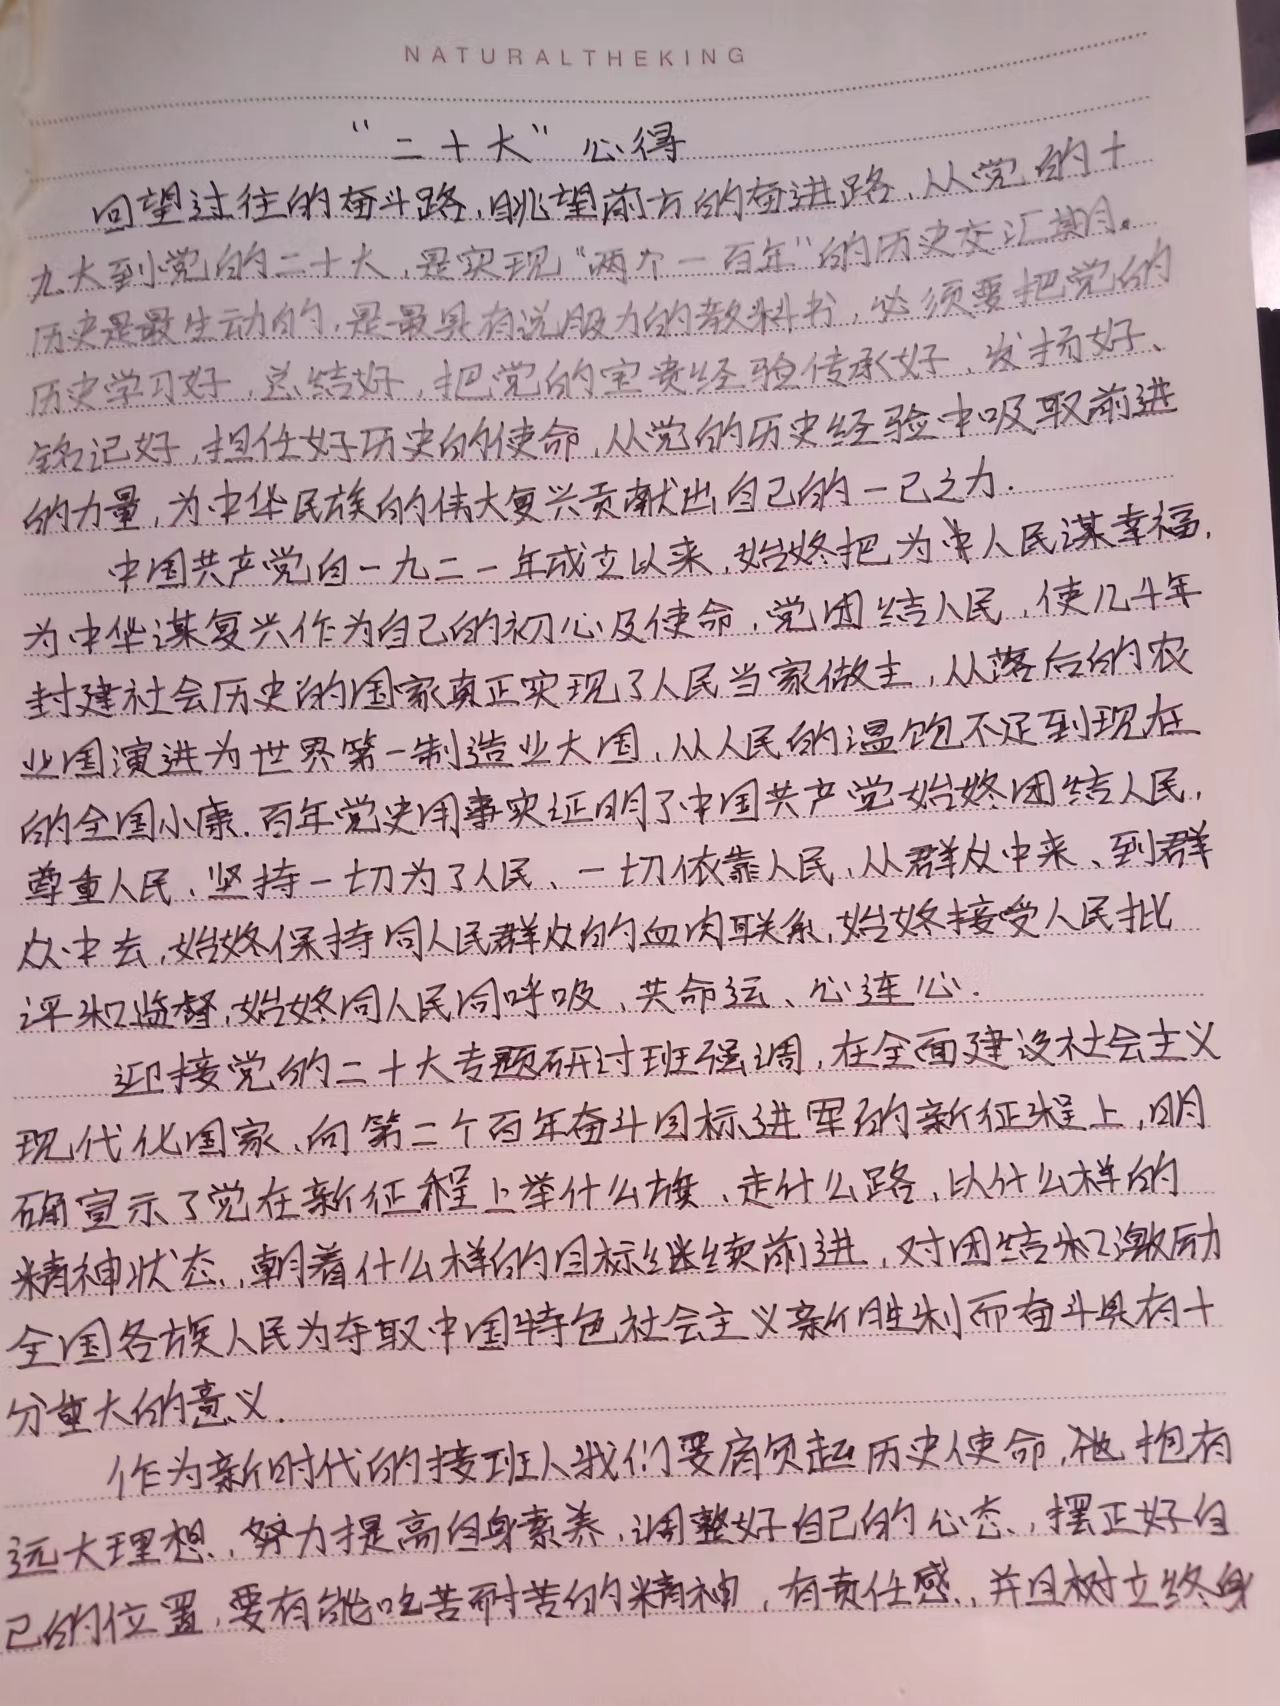 NATURALTHEKING
“二十大”心得
回望过往的奋斗路,眺望前方的奋进路,从党的十
九大到党的二十大,是实现“两个一百年”的历史交汇期。
历史是最生动的,是最具有说服力的教科书,必须要把党的
历史学习好,总结好,把党的宝贵经验传承好、发扬好、
铭记好,担任好历史的使命,从党的历史经验中吸取前进
的力量,为中华民族的伟大复兴贡献出自己的一己之力.
中国共产党自一九二一年成立以来,始终把为中人民谋幸福,
为中华谋复兴作为自己的初心及使命,党团结人民,使几千年
封建社会历史的国家真正实现了人民当家做主,从落后的农
业国演进为世界第一制造业大国,从人民的温饱不足到现在
的全国小康.百年党史用事实证明了中国共产党始终团结人民,
尊重人民、坚持一切为了人民、一切依靠人民,从群众中来、到群
众中去,始终保持同人民群众的血肉联系,始终接受人民批
评和监督,始终同人民同呼吸、共命运、心连心.
迎接党的二十大专题研讨班强调,在全面建设社会主义
现代化国家、向第二个百年奋斗目标进军的新征程上,明
确宣示了党在新征程上举什么旗、走什么路、以什么样的
精神状态、朝着什么样的目标继续前进,对团结和激励
全国各族人民为夺取中国特色社会主义新胜利而奋斗具有十
分重大的意义.
作为新时代的接班人我们要肩负起历史使命,抱有
远大理想、努力提高自身素养,调整好自己的心态、摆正好自
己的位置,要有能吃苦耐苦的精神,有责任感、并且树立终身